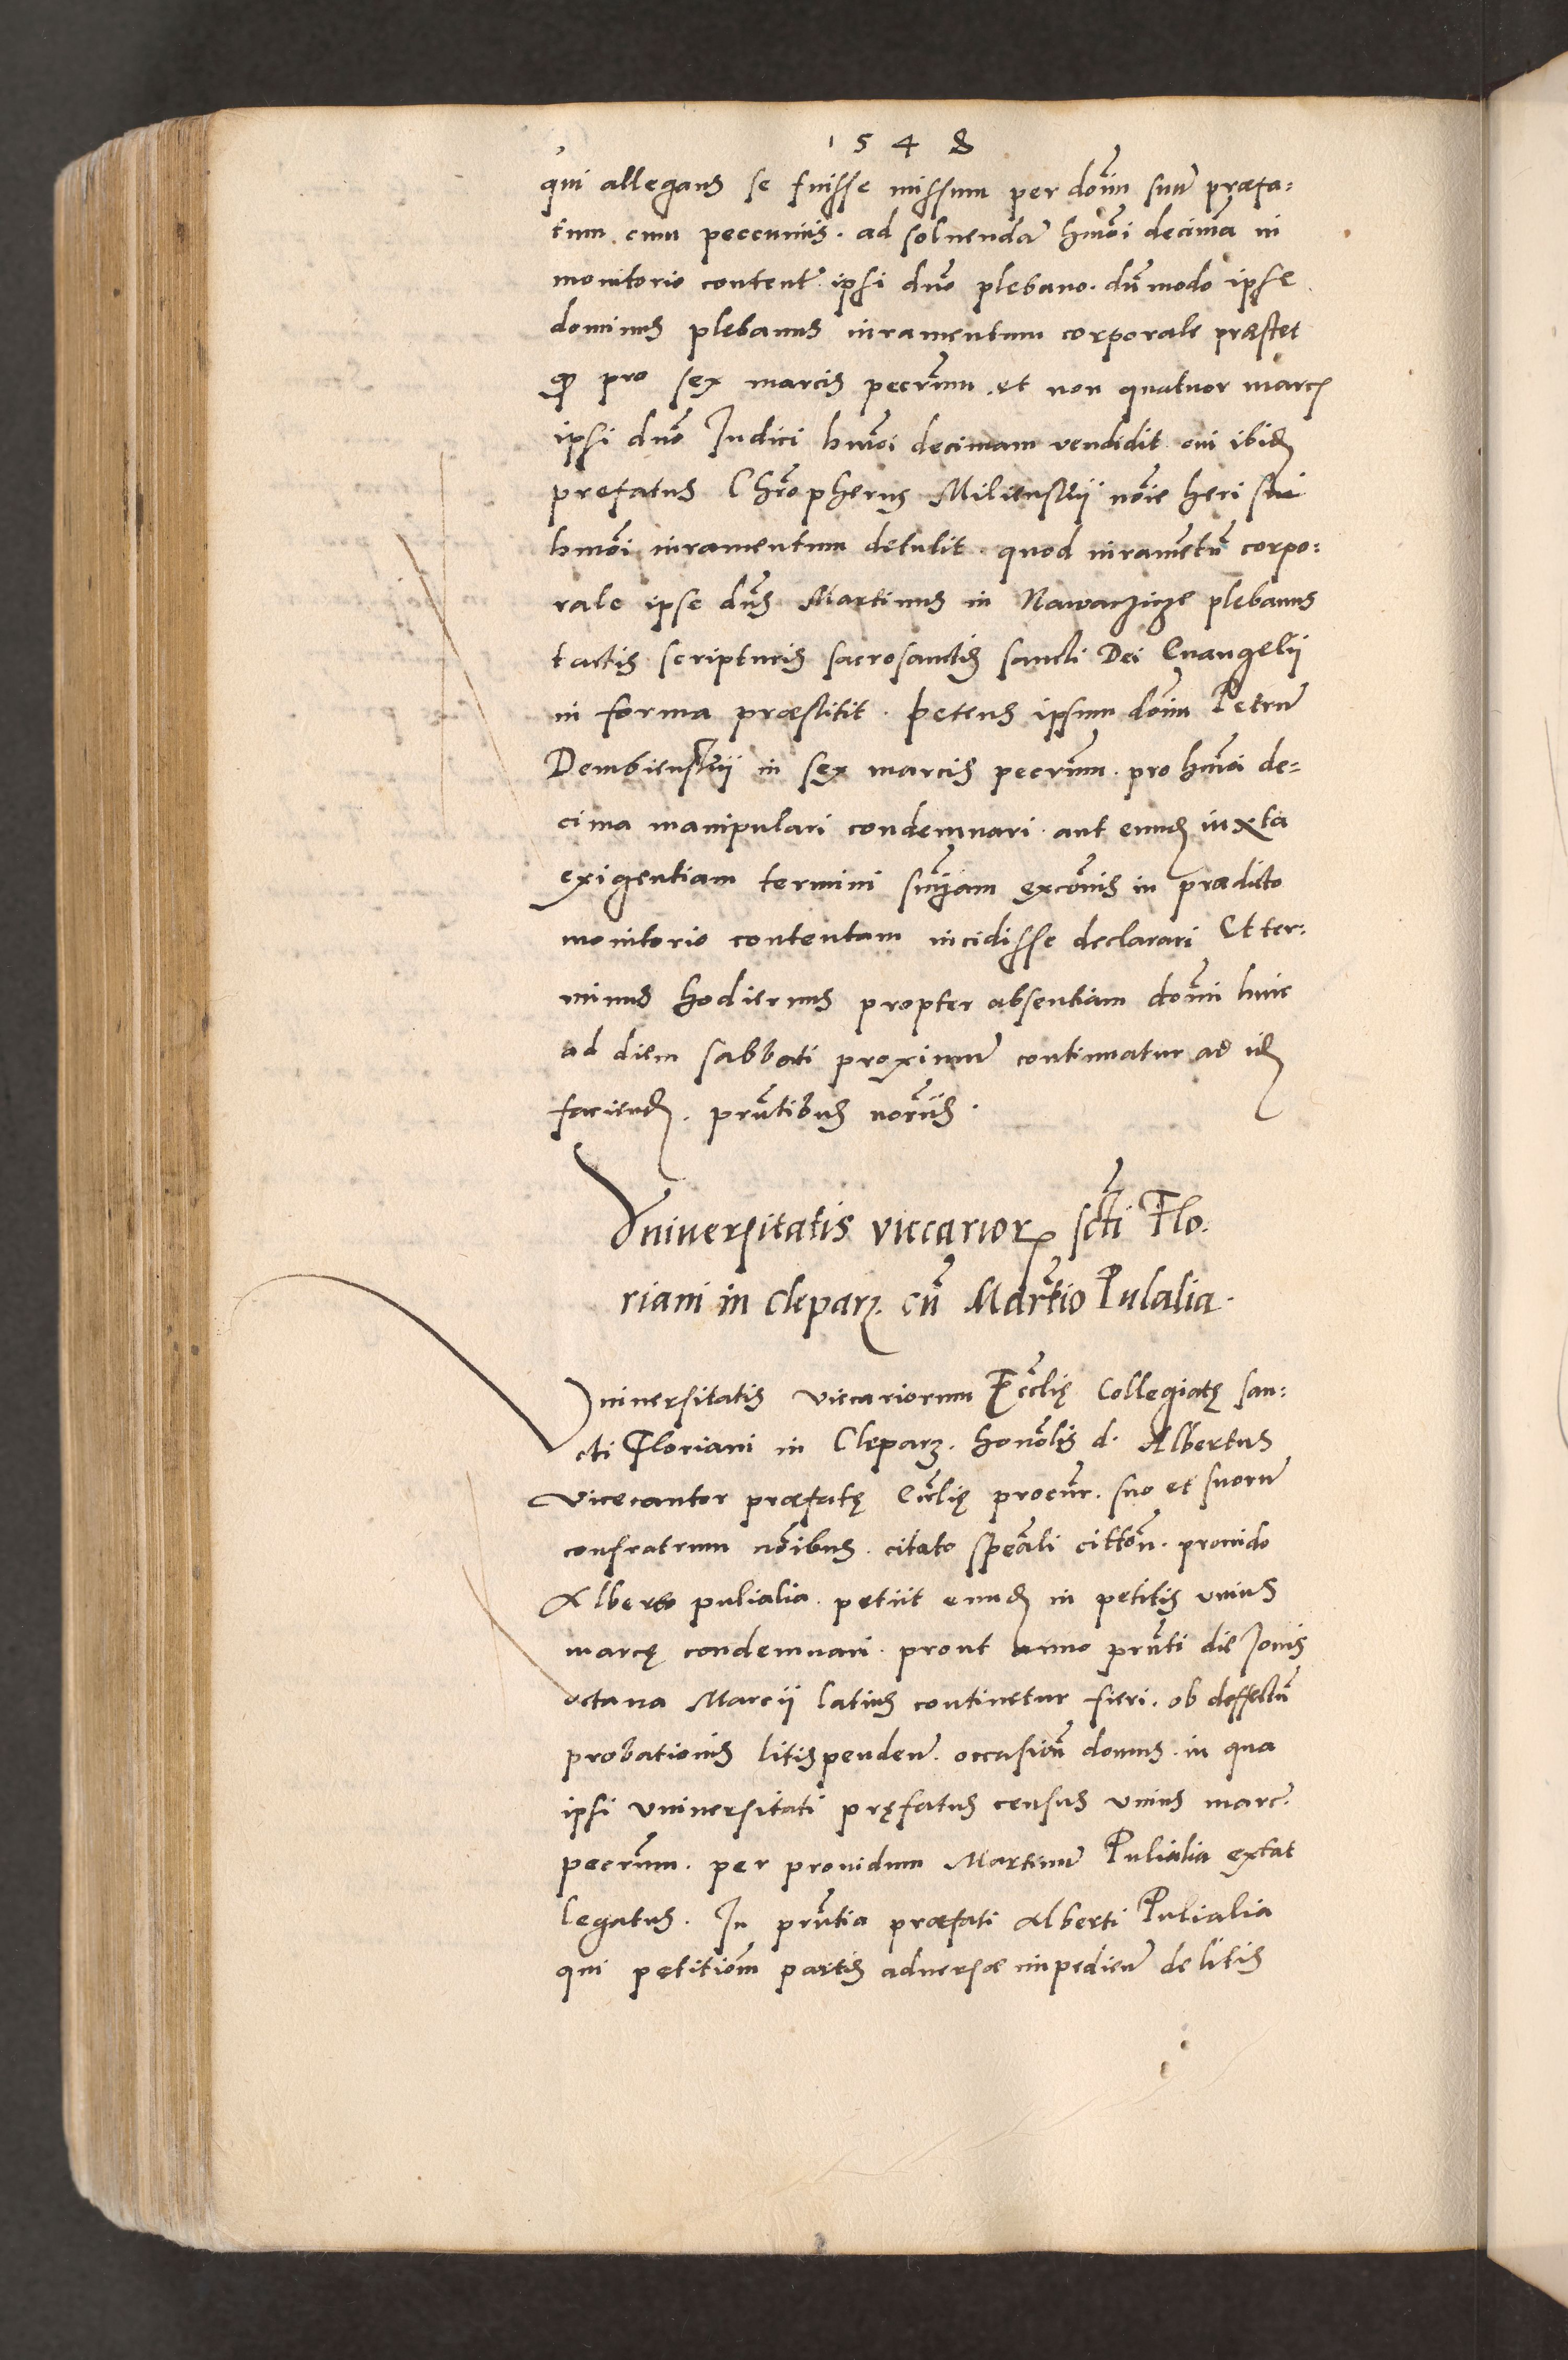 1548
qui allegans se fuisse missum per dom̃m suũ præfa=
tum cum peccuniis. ad soluendã hmõi decimã in
monitorio contentã ipsi dño plebano. dũmodo ipse
dominus plebanus iuramentum corporale præstet
pro sex marcis pecc̃rum. et non quatuor marcs
ipsi dño Iudici hmõi decimam vendidit cui ibidẽ
prefatus Chr̃opherus Miliensky nõie heri sui
hmõi iuramentum detulit. quod iuramẽtũ corpo=
rale ipse dñs Martinus in Nawarzicze plebanus
tactis scripturis sacrosanctis sancti Dei Euangelii
in forma præstitit. petens ipsum dom̃m Petrũ
Dembienskii in sex marcis pecc̃rum. pro hmõi de=
cima manipulari condemnari. aut eundẽ iuxta
exigentiam termini sñiam excõnis in prædicto
monitorio contentam incidisse declarari Et ter=
minus hodiernus propter absentiam domĩ huic
ad diem sabbati proximũ continuatur ad idẽ
faciendũ. pñtibus notariis.
Vniuersitatis viccarior̃ scti Flo.
riani in Cleparz. cũ Martĩo Pulalia.
Vniuersitatis viccariorum Ecclię Collegiatę san=
cti Floriani in Cleparz. honolis d. Albertus
Vicecantor præfatę Ecclię procur̃. suo et suorũ
confratrum nõibus. citato speciali cittõn. prouido
Alberto pulialia. petiit eundẽ in petitis vnius
marcę condemnari. prout anno pñti die Iouis
octaua Marcii latius continetur fieri. ob deffectũ
probationis litispendeñ. occasioñ domus. in qua
ipsi vniuersitati pręfatus census vnius marc̃.
pecc̃rum. per prouidum Martinũ Pulialia extat
legatus. In pñtia præfati Alberti Pulialia
qui petitiom̃ partis aduersæ impedieñ de litis